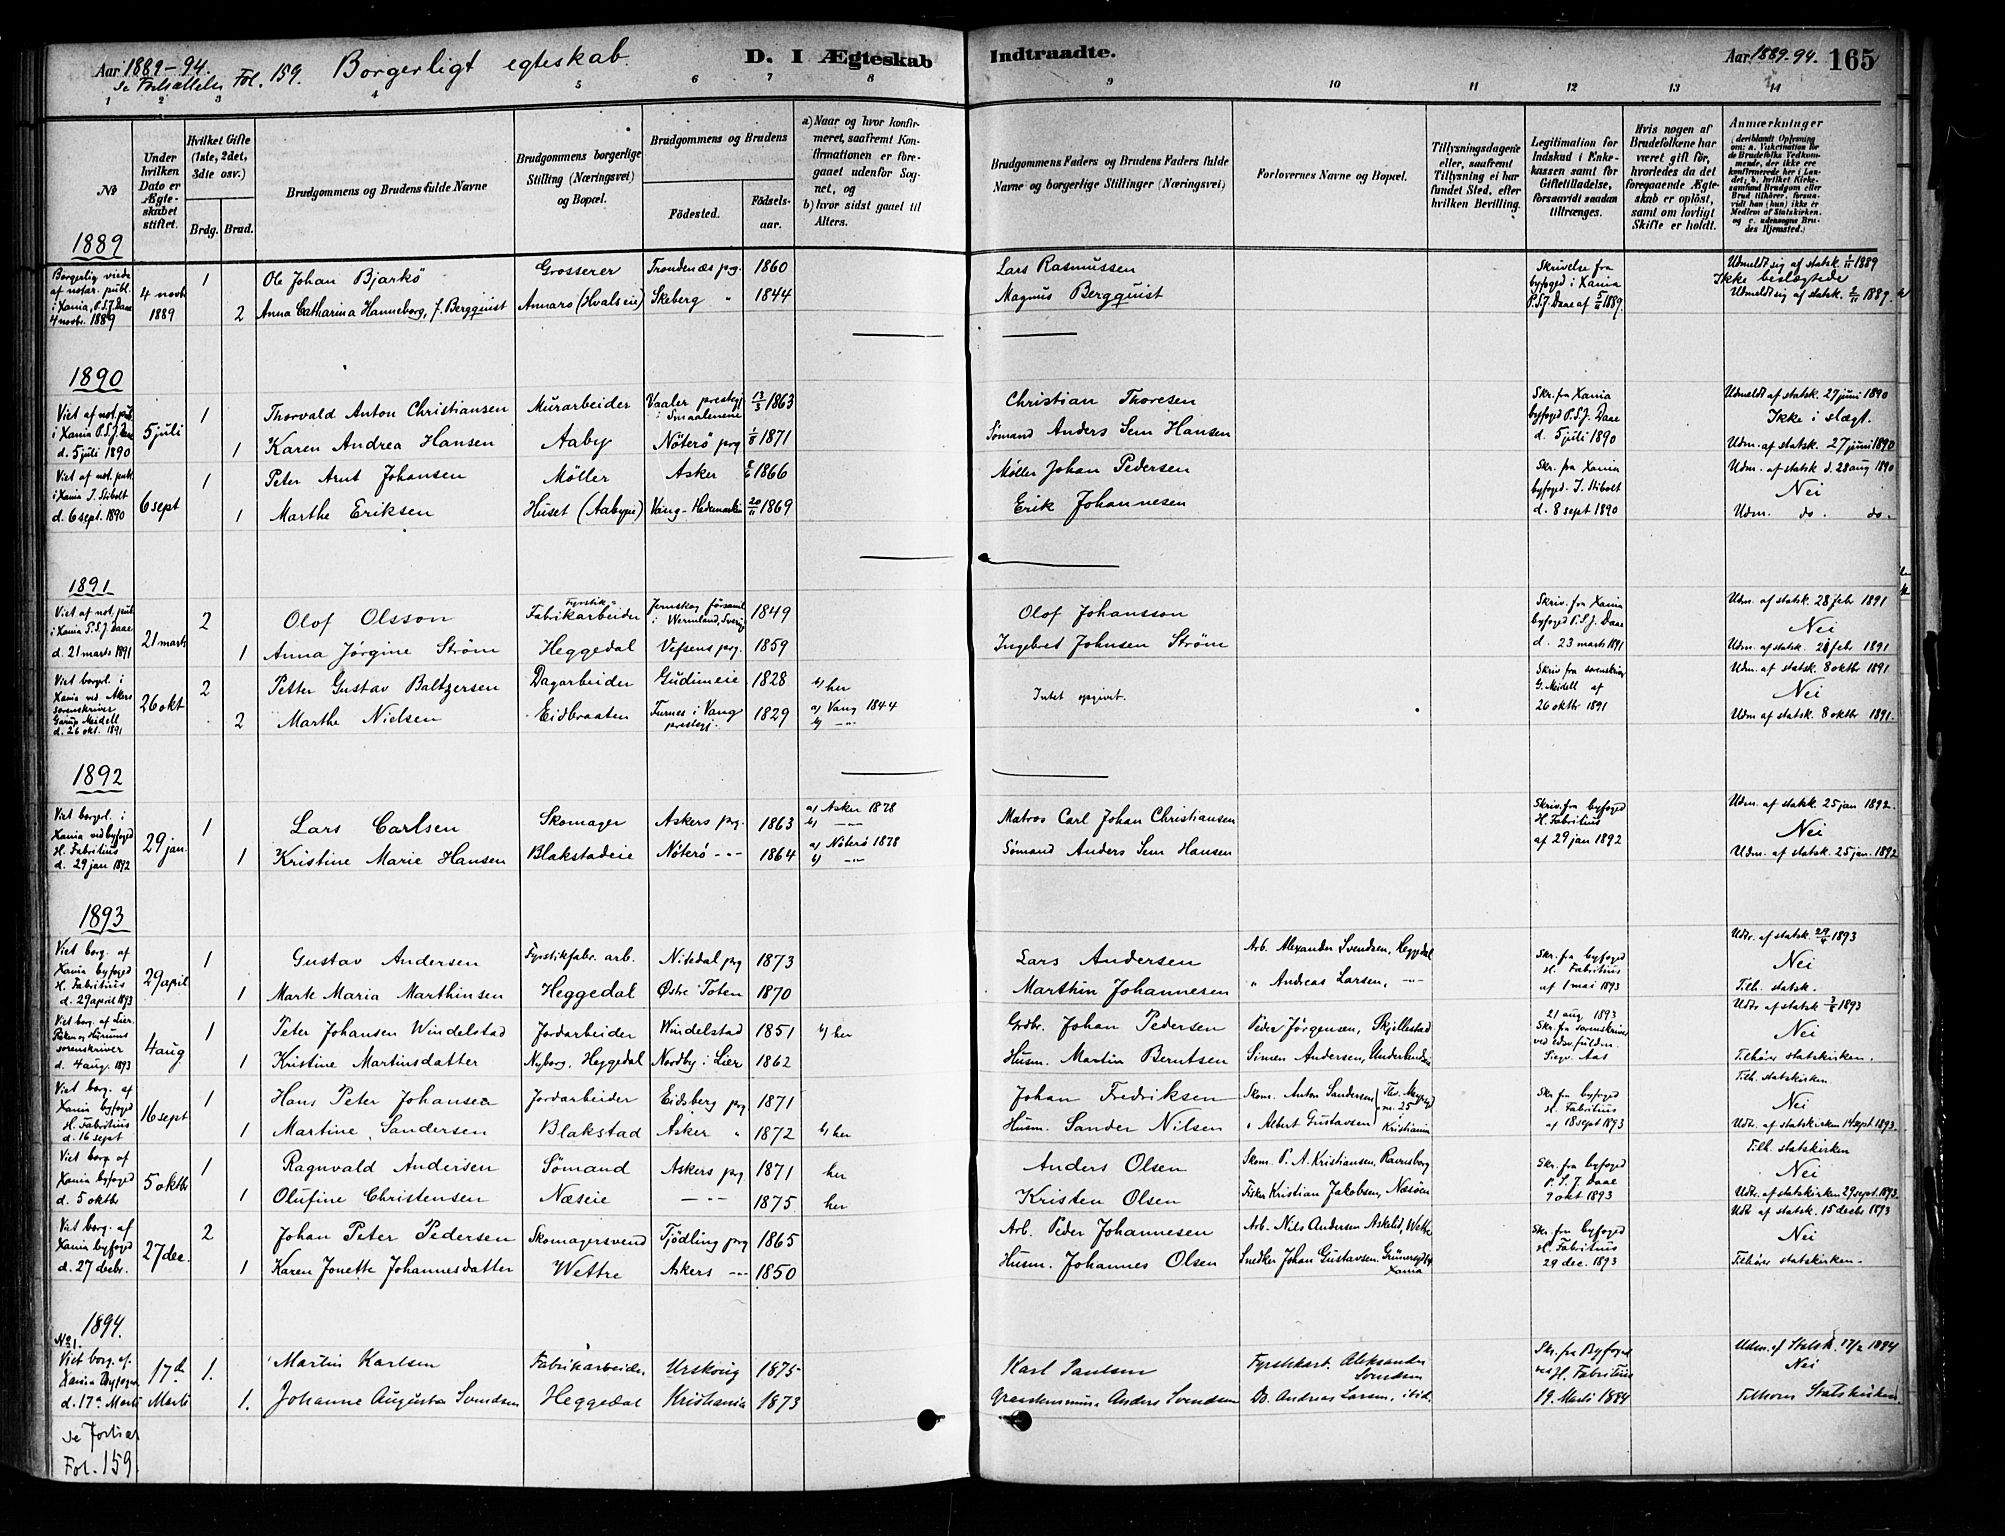 Aar 1889-94. Borgerligt egteskab. D. I Ægteskab Indtraadte. Aar 1889-94. 165
se Fortsættelse Fol. 159.
1 2 3 4 5 6 7 8 9 10 11 12 13 14
No
Under hvilken Dato er Ægteskabet stiftet.
Hvilket Gifte (1ste, 2det, 3die osv.)
Brdg. Brud.
Brudgommens og Brudens fulde Navne
Brudgommens borgerlige Stilling (Næringsvei) og Bopæl.
Brudgommens og Brudens
Fødested. Fødselsaar.
a) Naar og hvor konfirmeret, saafremt Konfirmationen er foregaaet udenfor Sognet, og
b) hvor sidst gaaet til Alters.
Brudgommens Faders og Brudens Faders fulde Navne og borgerlige Stillinger (Næringsvei)
Forlovernes Navne og Bopæl.
Tillysningsdagene eller, saafremt Tillysning ei har fundet Sted, efter hvilken Bevilling.
Legitimation for Indskud i Enkekassen samt for Giftetilladelse, forsaavidt saadan tiltrænges.
Hvis nogen af Brudefolkene har været gift før, hvorledes da det foregaaende Ægteskab er opløst, samt om lovligt Skifte er holdt.
Anmærkninger (deriblandt Oplysning om: a. Vaccination for de Brudefolks Vedkommende, der ikke ere konfirmerede her i Landet; b. hvilket Kirkesamfund Brudgom eller Brud tilhører, forsaavidt han (hun) ikke er Medlem af Statskirken, og c. udensogns Brudes Hjemsted.)
1889
Borgerlig viede af notar. publ. i Xania, P.S.J. Daae 4 novbr. 1889
4 novbr 1889 1 Ole Johan Bjarkö Grosserer Trondenæs pg. 1860 Lars Rasmussen Skrivelse fra byfoged i Xania P.S.J. Daae af 5/11 1889. Udmeldt sig af statsk. 1/11 1889
Ikke beslægtede
2 Anna Catharina Hanneborg, f. Bergquist Annaro (Hvalseie) Skeberg " 1844 Magnus Bergquist Udmeldt sig af statsk. 2/11 1889.
1890
Viet af not. pub. i Xania P.S.J. Daae d. 5 juli 1890
5 juli 1 Thorvald Anton Christiansen Murarbeider Vaaler prestegj i Smaalenene 13/3 1863 Christian Thoresen Skr. fra Xania byfoged P.S.J. Daae d. 5 juli 1890 Udmeldt af statsk. 27 juni 1890
Ikke i slægt.
1 Karen Andrea Hansen Aaby Nöterö prg 1/8 1871 Sømand Anders Sem Hansen Udm. af statsk. 27 juni 1890
Viet af not. pub. i Xania J. Stibolt d. 6 sept. 1890
6 sept 1 Peter Arnt Johansen Möller Asker 1866 Møller Johan Pedersen Skr. fra Xania byfoged. J. Stibolt d. 8 sept 1890 Udm. af statsk d. 28 aug 1890
Nei
1 Marthe Eriksen Huset (Aabyeie) Vang - Hedemarken 20/11 1869 Erik Johannesen Udm. do. do.
1891
Viet af not. pub. i Xania P.S.J. Daae d. 21 marts 1891
21 marts 2 Olof Olsson Fyrstik-Fabrikarbeider Jernskog församl i Wermland, Sverig 1849 Olof Johansson Skriv. fra Xania byfoged P.S.J. Daae d. 23 marts 1891 Udm. af statsk. 28 febr 1891
Nei
1 Anna Jørgine Strøm Heggedal Vefsens prg. 1859 Ingebret Johnsen Strøm Udm. af statsk. 28 febr 1891
Viet borgerl. i Xania ved Akers sorenskriver Garup Meidell d. 26 okt. 1891
26 okt 2 Petter Gustav Baltzersen Dagarbeider Gudimeie 1828 b) her Intet opgivet. Skriv fra sorenskriv G. Meidell af 26 oktbr 1891 Udm. af statsk. 8 oktbr 1891
Nei
2 Marthe Nielsen Eidbraaten Furnes i Vang prestegj. 1829 a) Vang 1844 b) -"- Udm af statsk. 8 oktbr 1891.
1892
Viet borgerl. i Xania ved byfoged H. Fabritius d. 29 jan 1892
29 jan. 1 Lars Carlsen Skomager Askers prg. 1863 a) Asker 1878 b) -"- Matros Carl Johan Christiansen Skriv. fra byfoged H. Fabritius af 29 jan 1892 Udm. af statsk. 25 jan 1892.
Nei
1 Kristine Marie Hansen Blakstadeie Nöterö -"- 1864 a) Nöterö 1878 b) -"- Sømand Anders Sem Hansen Udm. af statsk. 25 jan. 1892
1893
Viet borg. af Xania byfoged H. Fabritius d. 29 april 1893
29 april 1 Gustav Andersen Fyrstikfabr. arb. Nitedal prg 1873 Lars Andersen Arb. Alexander Svendsen, Heggdal Skr. fra byfoged H. Fabritius af 1 mai 1893 Udtr. af statsk. 29/4 1893
Nei
1 Marte Maria Marthinsen Heggedal Østre Toten 1870 Marthin Johannesen " Andreas Larsen, -"- Tilh. statsk.
Viet borg. af Lier, Röken og Hurums sorenskriver d. 4 aug. 1893
4 aug 1 Peter Johansen Windelstad Jordarbeider Windelstad 1851 b) her Grdbr. Johan Pedersen Peder Jörgensen, Skjellestad 21 aug 1893 Skr. fra sorenskriver ved edsv. fuldm. Sigv. Aas Udtr af statsk 3/8 1893
Nei
1 Kristine Martinsdatter Nyborg, Heggedal Nordby i Lier 1862 Husm. Martin Berntsen Simen Andersen, Underlandsei Tilhører statskirken.
Viet borg. af Xania byfoged H. Fabritius d. 16 sept
16 sept 1 Hans Peter Johansen Jordarbeider Eidsberg prg 1871 Johan Fredriksen Skom. Anton Sandersen Skr. fra byfoged H. Fabritius af 18 sept 1893 Tilh. statskirken
Nei
1 Martine Sandersen Blakstad Asker " 1872 b) her Husm. Sander Nilsen " Albert Gustavsen Kristiania Udtr. af statskirken 14 sept. 1893.
Viet borg. af Xania byfoged d. 5 oktbr
5 oktbr 1 Ragnvald Andersen Sömand Askers prg 1871 her Anders Olsen Skom. P. A. Kristiansen, Ravnsborg Skr. fra byfoged P.S.J. Daae 9 okt 1893 Tilh. statskirken
Nei
1 Olufine Christensen Næseie -"- 1875 her Kristen Olsen Fisker Kristian Jakobsen, Næsøen Udtr. af statskirken 29 sept. 1893.
Viet borg. af Xania byfoged d. 27 decbr.
27 dec. 2 Johan Peter Pedersen Skomagersvend Tjödling prg 1865 Arb. Peder Johannesen Arb. Nils Andersen Askelid, Wettre Skr. fra byfoged H. Fabritius 29 dec. 1893 Udtr af statsk. 15 decbr 1893
Nei
1 Karen Jonette Johannesdatter Wettre Askers -"- 1850 Husm. Johannes Olsen Snedker Johan Gustavsen. Xania Tilhører statskirken.
1894.
No 1.
Viet borg. af. Xania Byfoged d. 17de Marts
17de Marts 1. Martin Karlsen Fabrikarbeider Urskoug 1875 Karl Paulsen Fyrstikarb. Aleksander Svendsen Skr. fra Byfoged ved H. Fabritius 19. Marts 1884 Udm. af Statsk. 17/2 1894
Nei
1. Johanne Augusta Svendsen Heggedal Kristiania 1873 Anders Svendsen Do. Andreas Larsen, ibid. Tilhører Statskirken.
se Fortsat
Fol. 159